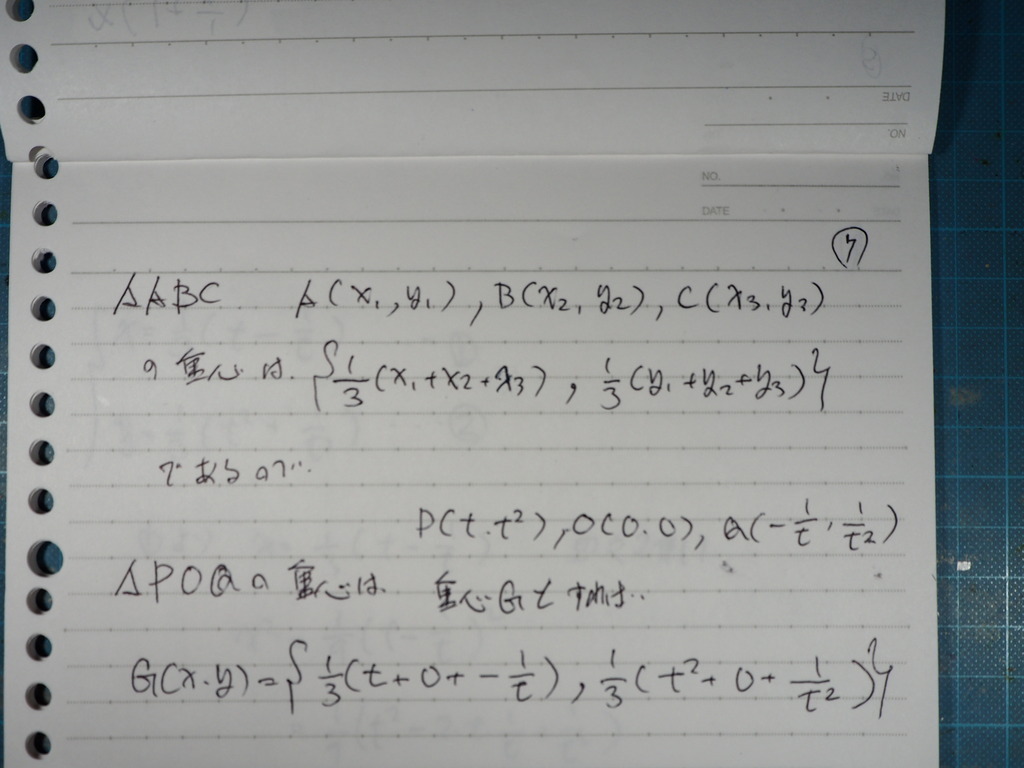 NO.
DATE
NO.
DATE
④
△ABC A(x₁,y₁), B(x₂,y₂), C(x₃,y₃)
の重心は. {1/3(x₁+x₂+x₃), 1/3(y₁+y₂+y₃)}
であるので..
P(t.t²), O(0.0), Q(-1/t, 1/t²)
△POQの重心は. 重心Gとすれば..
G(x.y)={1/3(t+0+-1/t), 1/3(t²+0+1/t²)}